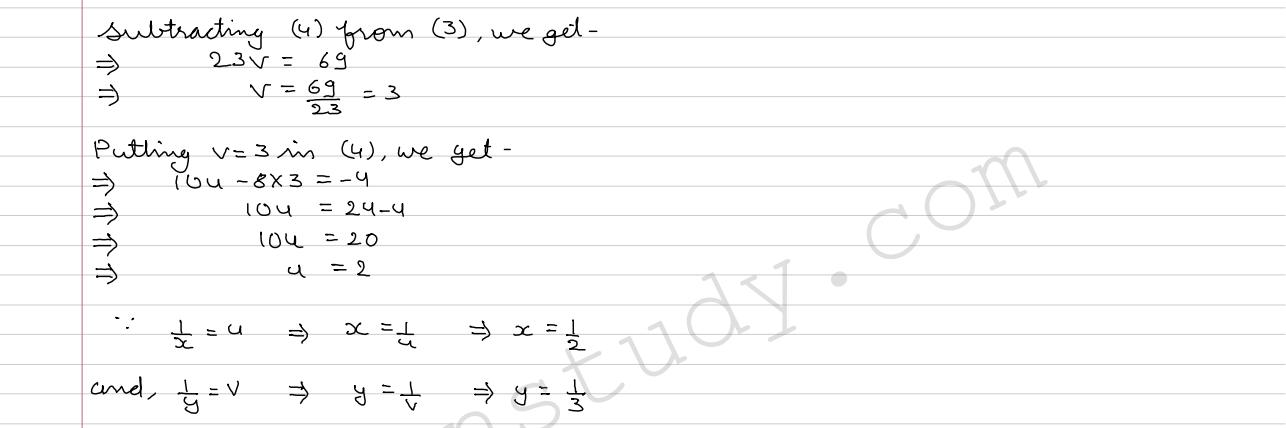 Subtracting (4) from (3), we get-
⇒ 23v = 69
⇒ v = 69/23 = 3
Putting v=3 in (4), we get -
⇒ 10u - 8×3 = -4
⇒ 10u = 24-4
⇒ 10u = 20
⇒ u = 2
∵ 1/x = u ⇒ x = 1/u ⇒ x = 1/2
and, 1/y = v ⇒ y = 1/v ⇒ y = 1/3
study.com